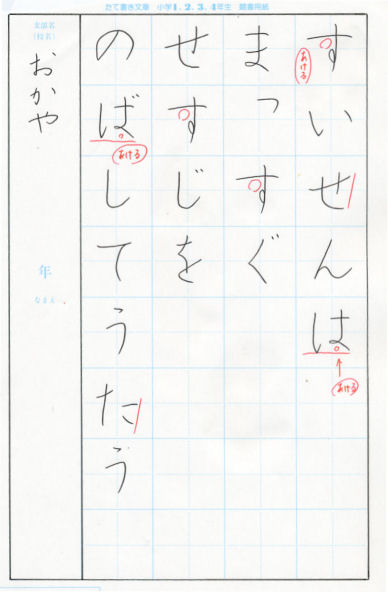 たて書き文章 小学1、2、3、4年生 競書用紙
すいせんは
まっすぐ
せすじを
のばしてうたう
あける
あける
あける
支部名
(校名)
おかや
年
なまえ